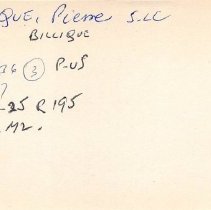 QUE, Pierre S-LC
BILLIQUE
96 (3) P-US
-25 R 195
M2.